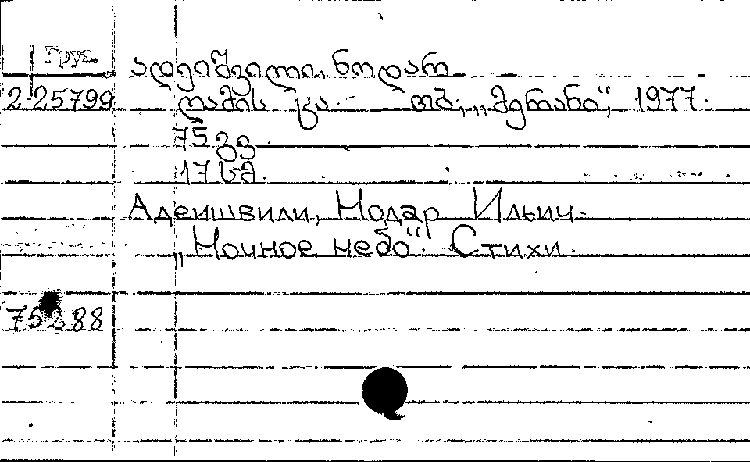 Груз.
ადეიშვილი, ნოდარ
2 25799 ღამის ცა. - თბ., „მერანი“, 1977.
75 გვ.
17 სმ.
Адеишвили, Нодар Ильич.
„Ночное небо“. Стихи.